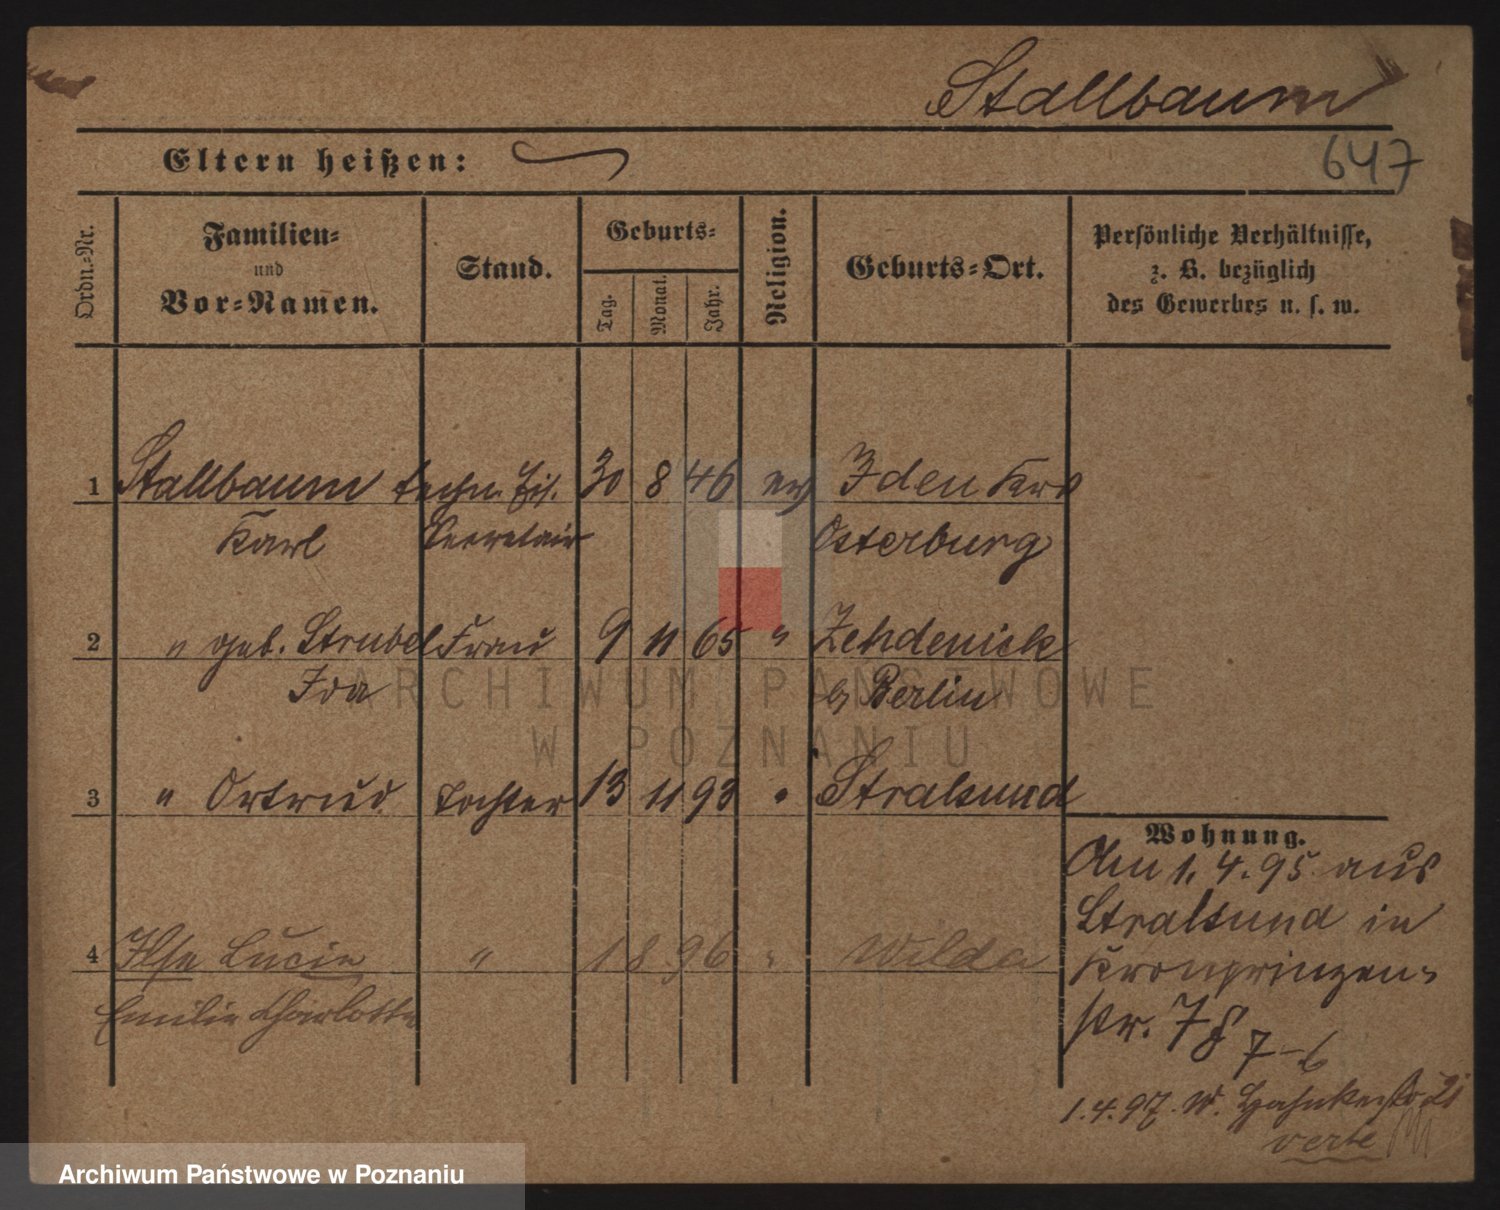 Stallbaum
Eltern heißen:
647
Ordn.-Nr.
Familien-
und
Vor-Namen.
Stand.
Geburts-
Tag.
Monat.
Jahr.
Religion.
Geburts-Ort.
Persönliche Verhältnisse,
z. B. bezüglich
des Gewerbes u. s. w.
1 Stallbaum techn. Eis. 30 8 46 ev Iden Krs
Karl Secretair Osterburg
2 " geb. Strubel Frau 9 11 65 " Zehdenick
Ida b/ Berlin
3 " Ortrud Tochter 13 11 93 " Stralsund
4 Ilse Lucie " 1 8 96 " Wilda
Emilie Charlotte
Wohnung.
Am 1. 4. 95 aus
Stralsund in
Kronprinzen-
str. 78
7-6
1.4.97. W.
verte
ARCHIWUM PAŃSTWOWE
W POZNANIU
Archiwum Państwowe w Poznaniu